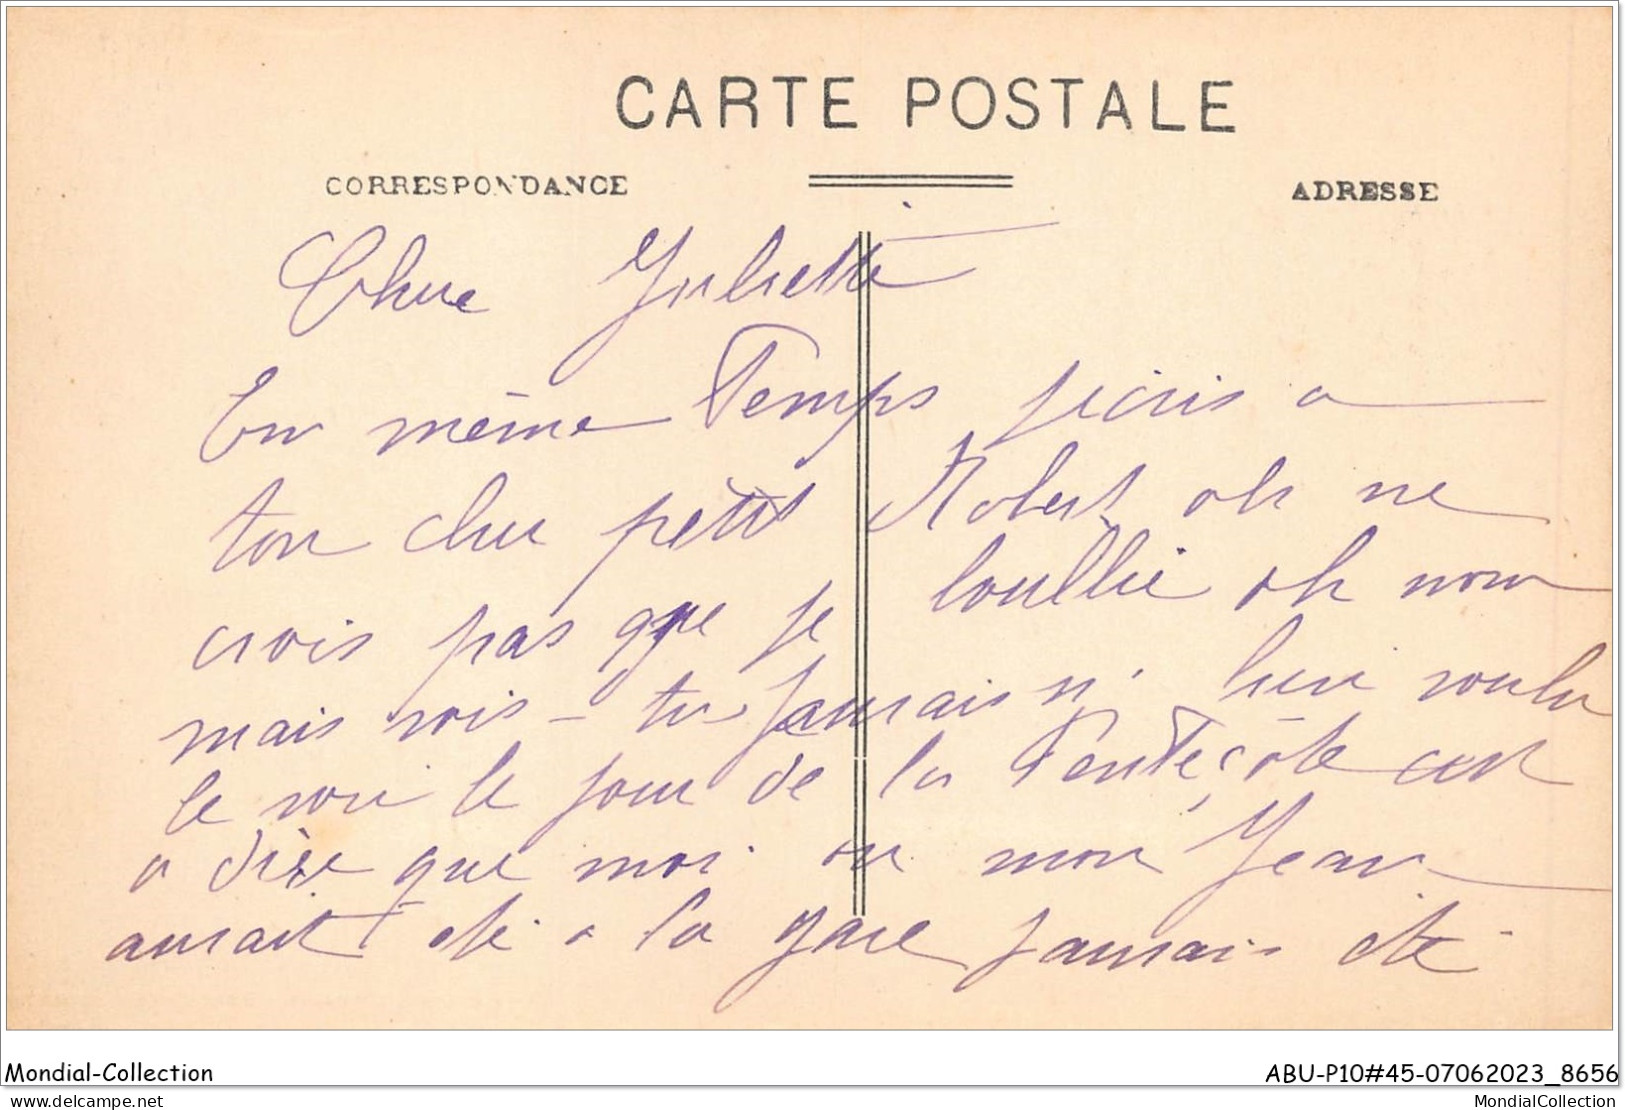 CARTE POSTALE
CORRESPONDANCE
ADRESSE
Chere Juliette
En même Temps jecris a
ton cher petit Robert oh ne
crois pas que je loullie oh non
mais vois-tu Jamais n' bien voulu
le voir le jour de la Pentecôte cest
a dire que moi ou mon Jean
aurait eté a la gare Jamais eté
Mondial-Collection
ABU-P10#45-07062023_8656
www.delcampe.net
MondialCollection